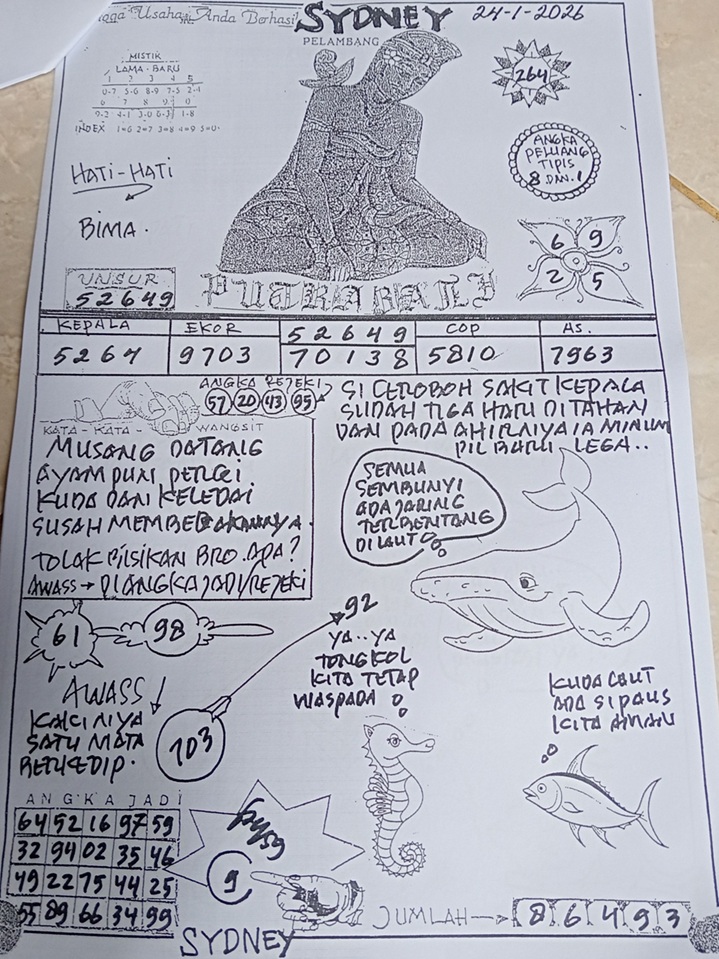 Usaha Anda Berhasi
SYDNEY
24-1-2026
PELAMBANG
MISTIK
LAMA - BARU
1 2 3 4 5
0-7 5-6 8-9 7-5 2-4
6 7 8 9 0
9-2 4-1 3-0 6-3 1-8
INDEX 1=6 2=7 3=8 4=9 5=0
264
ANGKA
PELUANG
TIPIS
8 DAN 1
HATI-HATI
BIMA.
6 9
2 5
UNSUR
52649
PUTRA BALI
KEPALA EKOR 52649 COP AS.
5267 9703 70138 5810 7963
ANGKA REJEKI
57 20 43 95
KATA - KATA - WANGSIT
SI CEROBOH SAKIT KEPALA
SUDAH TIGA HARI DITAHAN
DAN PADA AHIRNIYA IA MINUM
PIL BARU LEGA..
MUSANG DATANG
AYAM PUN PERGI
KUDA DAN KELEDAI
SUSAH
TOLAK BRO. APA?
AWASS → DIANGKA JADI/REJEKI
SEMUA
SEMBUNYI
ADA JARING
TERBENTANG
DI LAUT
61 98
92
YA..YA
TONGKOL
KITA TETAP
WASPADA
AWASS
SATU MATA
103
KUDA LAUT
ADA SI PAUS
KITA AMAN
ANGKA JADI
64 52 16 97 59
32 94 02 35 46
49 22 75 44 25
55 89 66 34 99
9
JUMLAH → 86493
SYDNEY